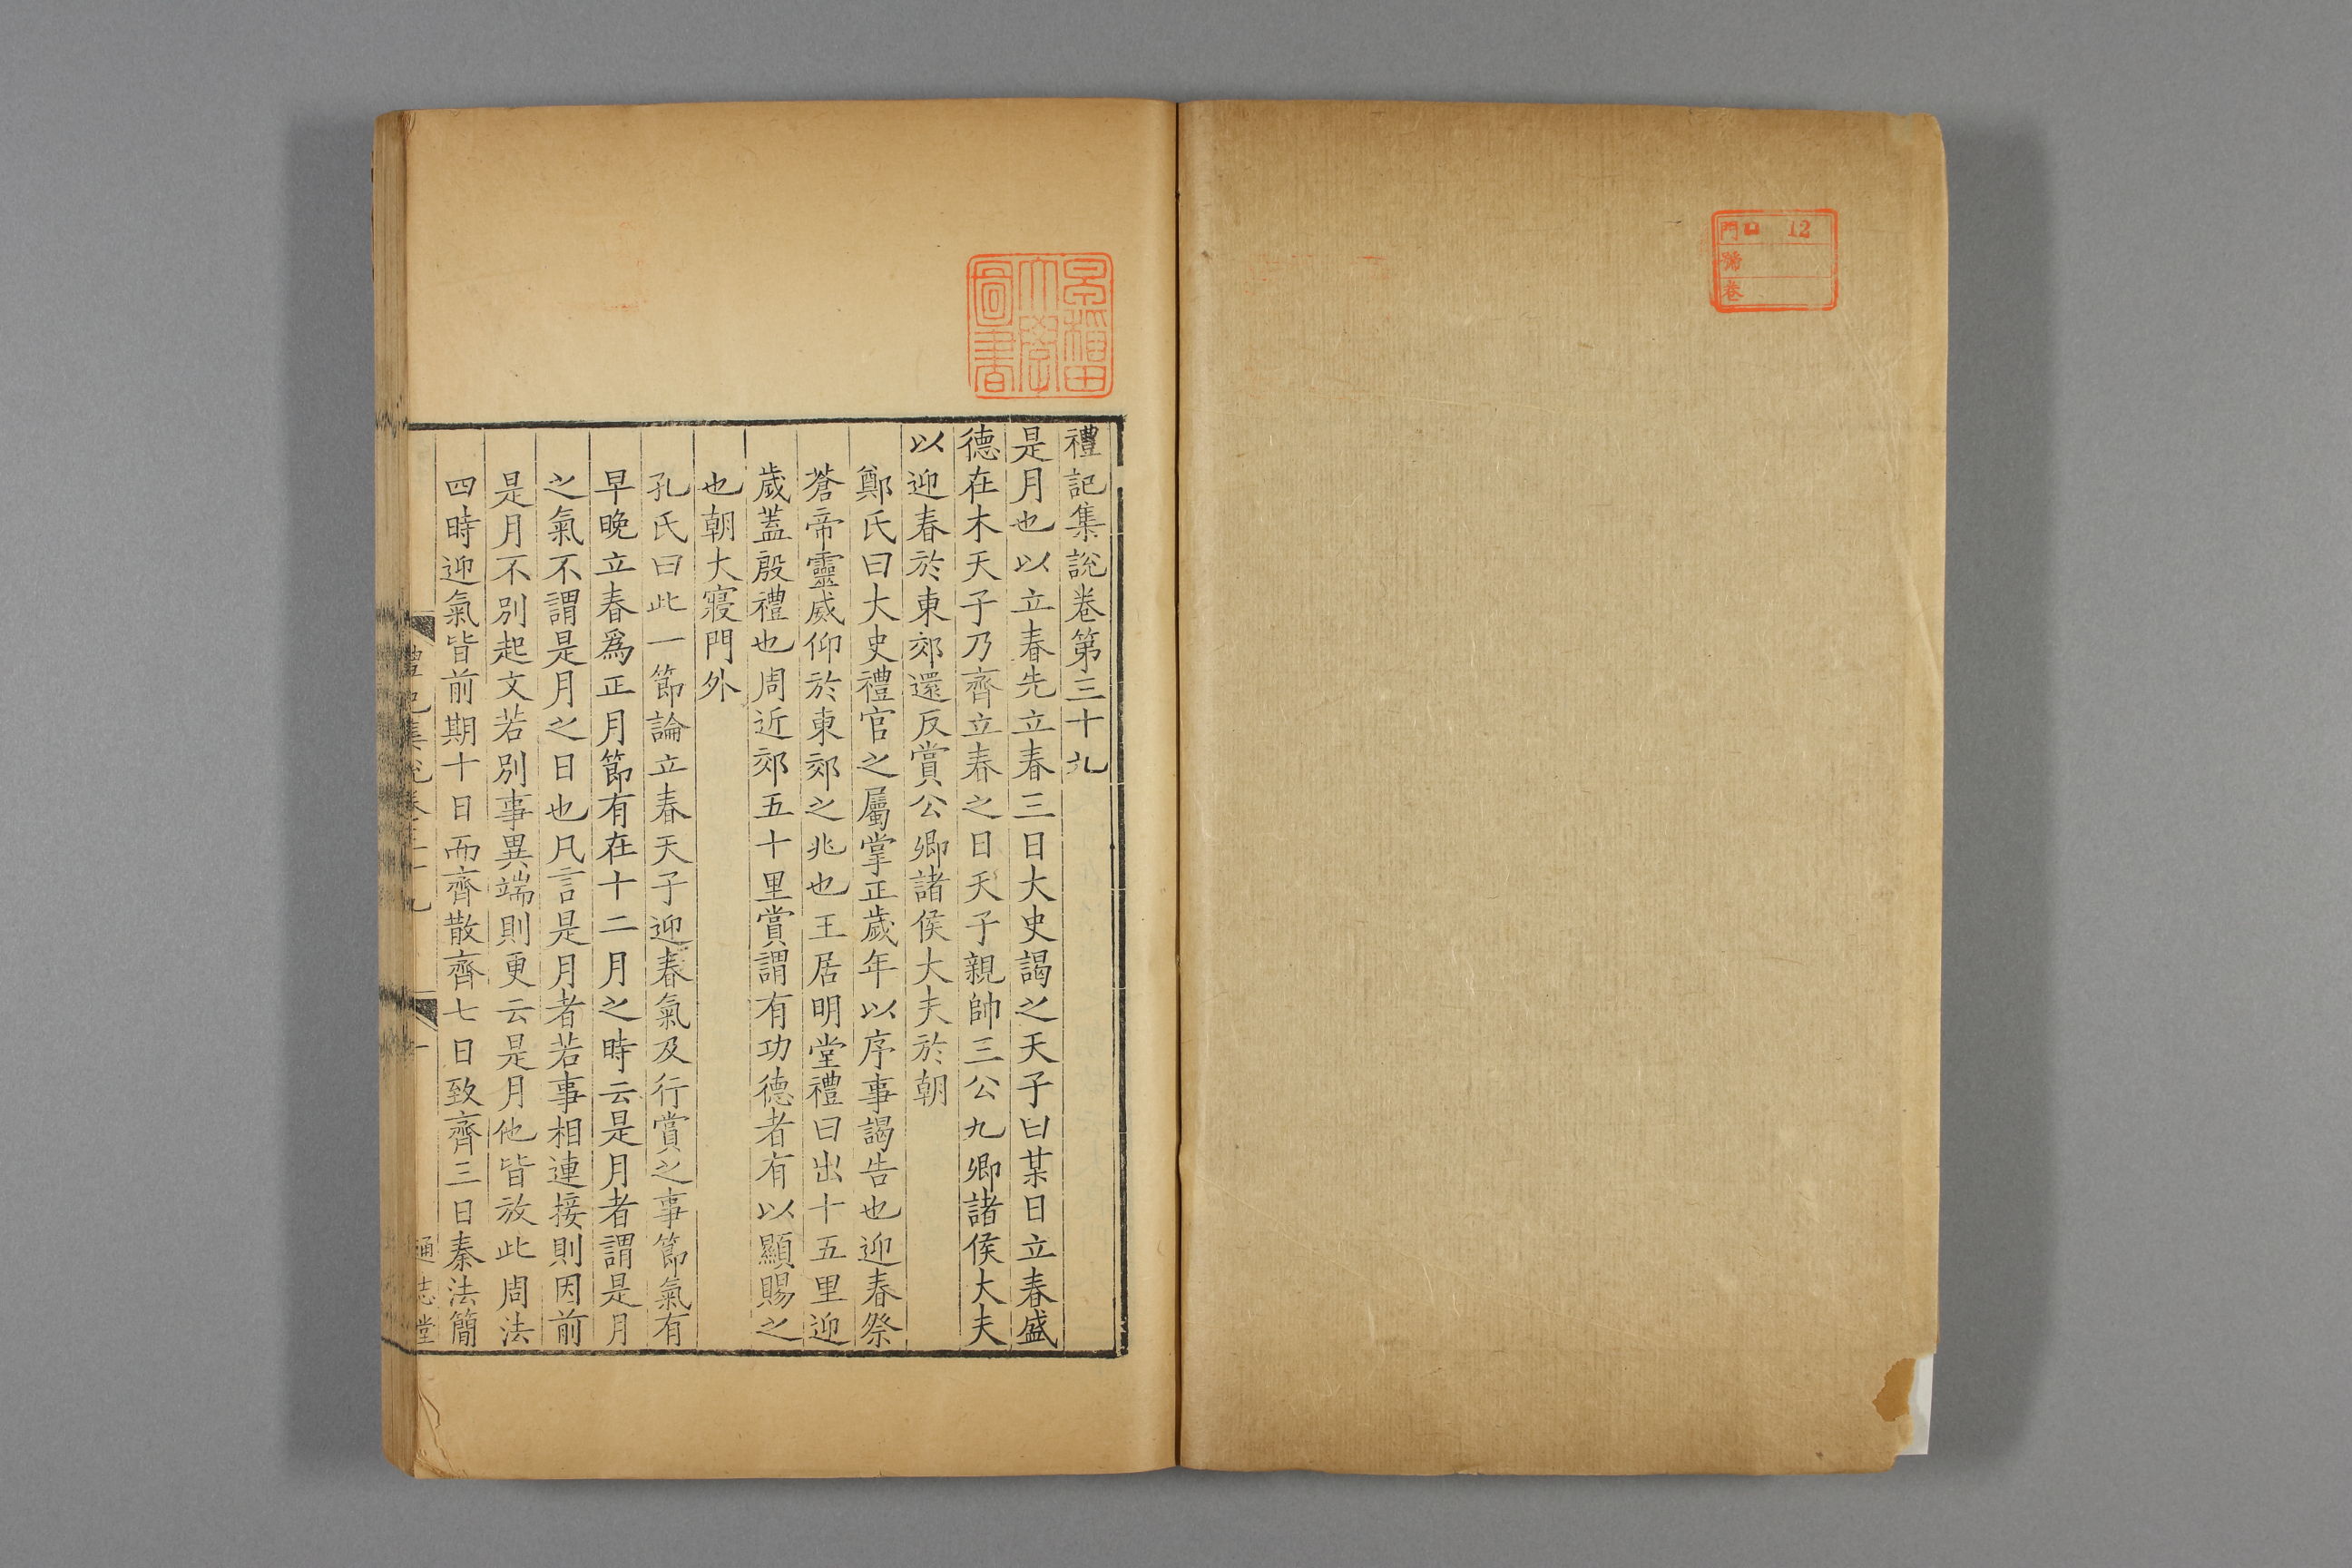 門 口 12
號
卷
早稲田
大學
圖書
禮記集說卷第三十九
是月也以立春先立春三日大史謁之天子曰某日立春盛
德在木天子乃齊立春之日天子親帥三公九卿諸侯大夫
以迎春於東郊還反賞公卿諸侯大夫於朝
鄭氏曰大史禮官之屬掌正歲年以序事謁告也迎春祭
蒼帝靈威仰於東郊之兆也王居明堂禮曰出十五里迎
歲蓋殷禮也周近郊五十里賞謂有功德者有以顯賜之
也朝大寢門外
孔氏曰此一節論立春天子迎春氣及行賞之事節氣有
早晚立春爲正月節有在十二月之時云是月者謂是月
之氣不謂是月之日也凡言是月者若事相連接則因前
是月不別起文若別事異端則更云是月他皆放此周法
四時迎氣皆前期十日而齊散齊七日致齊三日秦法簡
禮記集說卷三十九 一 通志堂